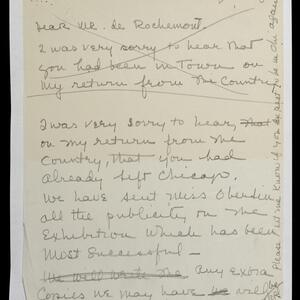 Dear Mr. de Rochemont.
I was very sorry to hear that
you had been in Town on
my return from the Country
I was very sorry to hear, that
on my return from the
Country, that you had
already left Chicago.
We have sent Miss Oberdin
all the publicity on the
Exhibition which has been
Most Successful —
We will write the any extra
Copies we may have we will be
Please let me know if you expect to be in Chi again